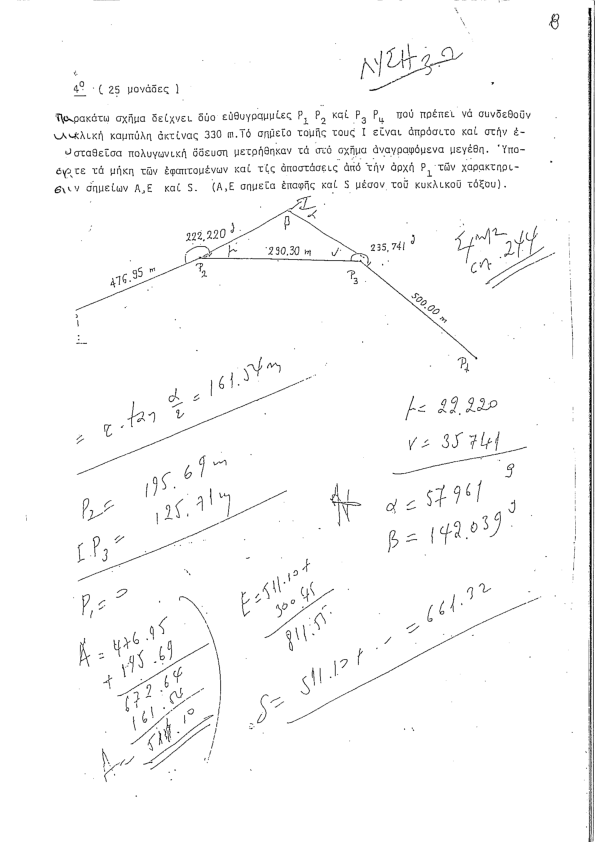 8
ΛΥΣΗ
4º ( 25 μονάδες )
Παρακάτω σχῆμα δείχνει δύο εὐθυγραμμίες P1 P2 καί P3 P4 πού πρέπει νά συνδεθοῦν
κλική καμπύλη ἀκτίνας 330 m.Τό σημεῖο τομῆς τους Ι εἶναι ἀπρόσιτο καί στήν ἐ-
σταθεῖσα πολυγωνική ὅδευση μετρήθηκαν τά στό σχῆμα ἀναγραφόμενα μεγέθη. Ὑπο-
τε τά μήκη τῶν ἐφαπτομένων καί τίς ἀποστάσεις ἀπό τήν ἀρχή P1 τῶν χαρακτηρι-
ν σημείων Α,Ε καί S. (Α,Ε σημεῖα ἐπαφῆς καί S μέσον τοῦ κυκλικοῦ τόξου).
I
α
β
222,220
290,30 m
235,741
P2
P3
476.95 m
500.00 m
P4
244
= τ. tan α/2 = 161.54 m
P2 = 195.69 m
I.P3 = 125.71 m
t = 22.220
v = 35741
α = 57961 g
β = 142.039 g
P1 = 0
A = 476.95
+ 195.69
672.64
161.54
A = 511.10
E = 511.10 +
300.45
811.55
S = 511.10 + .. = 661.32